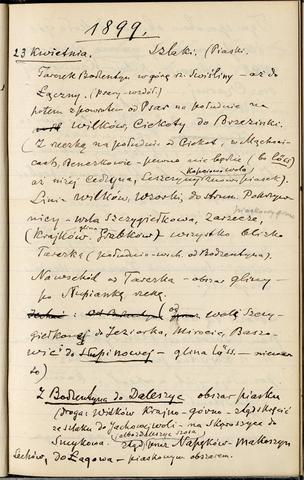 1899.
23 Kwietnia. Szlaki. (Piaski.
Tarczek Bodzentyn w górę rz. Świśliny – aż do
Łączny. (prawy-wzdół)
potem z powrotem od Psar na południe na
Wilków, Ciekoty do Brzezinki.
(Z rzeczką na południe od Ciekot, w Mąchoci-
cach, Beneczkowie – pewno nie będzie (bo löss)
Kapciowizna
aż niżej Cedzyna, Leszczyny znowu piasek).
Linia Wilków, Wzorki, do strum. Pokrzyw
piaskowy górn
nicy – Wola Szczygiełkowa, Zarzecze,
(Krajków Grabków) wszystko blisko
Tarczka (południo-wsch. od Bodzentyna).
Na wschód od Tarczka – obszar gliny –
po Nupiankę rzekę.
(od Wolę Szczy-
giełkowej do Jeziorka, Mirocic, Basz-
owic do Słupinowej – glina löss. – niewia-
do)
Z Bodzentyna do Daleszyc obszar piasku
Droga: Wilków Krajno – górno – stąd skręcić
ze szlaku do Jachowejwoli – na Skorzeszyce do
Smykowa: stąd Napęków – Makoszyn
Lechów, do Łagowa – piaskowym obszarem.